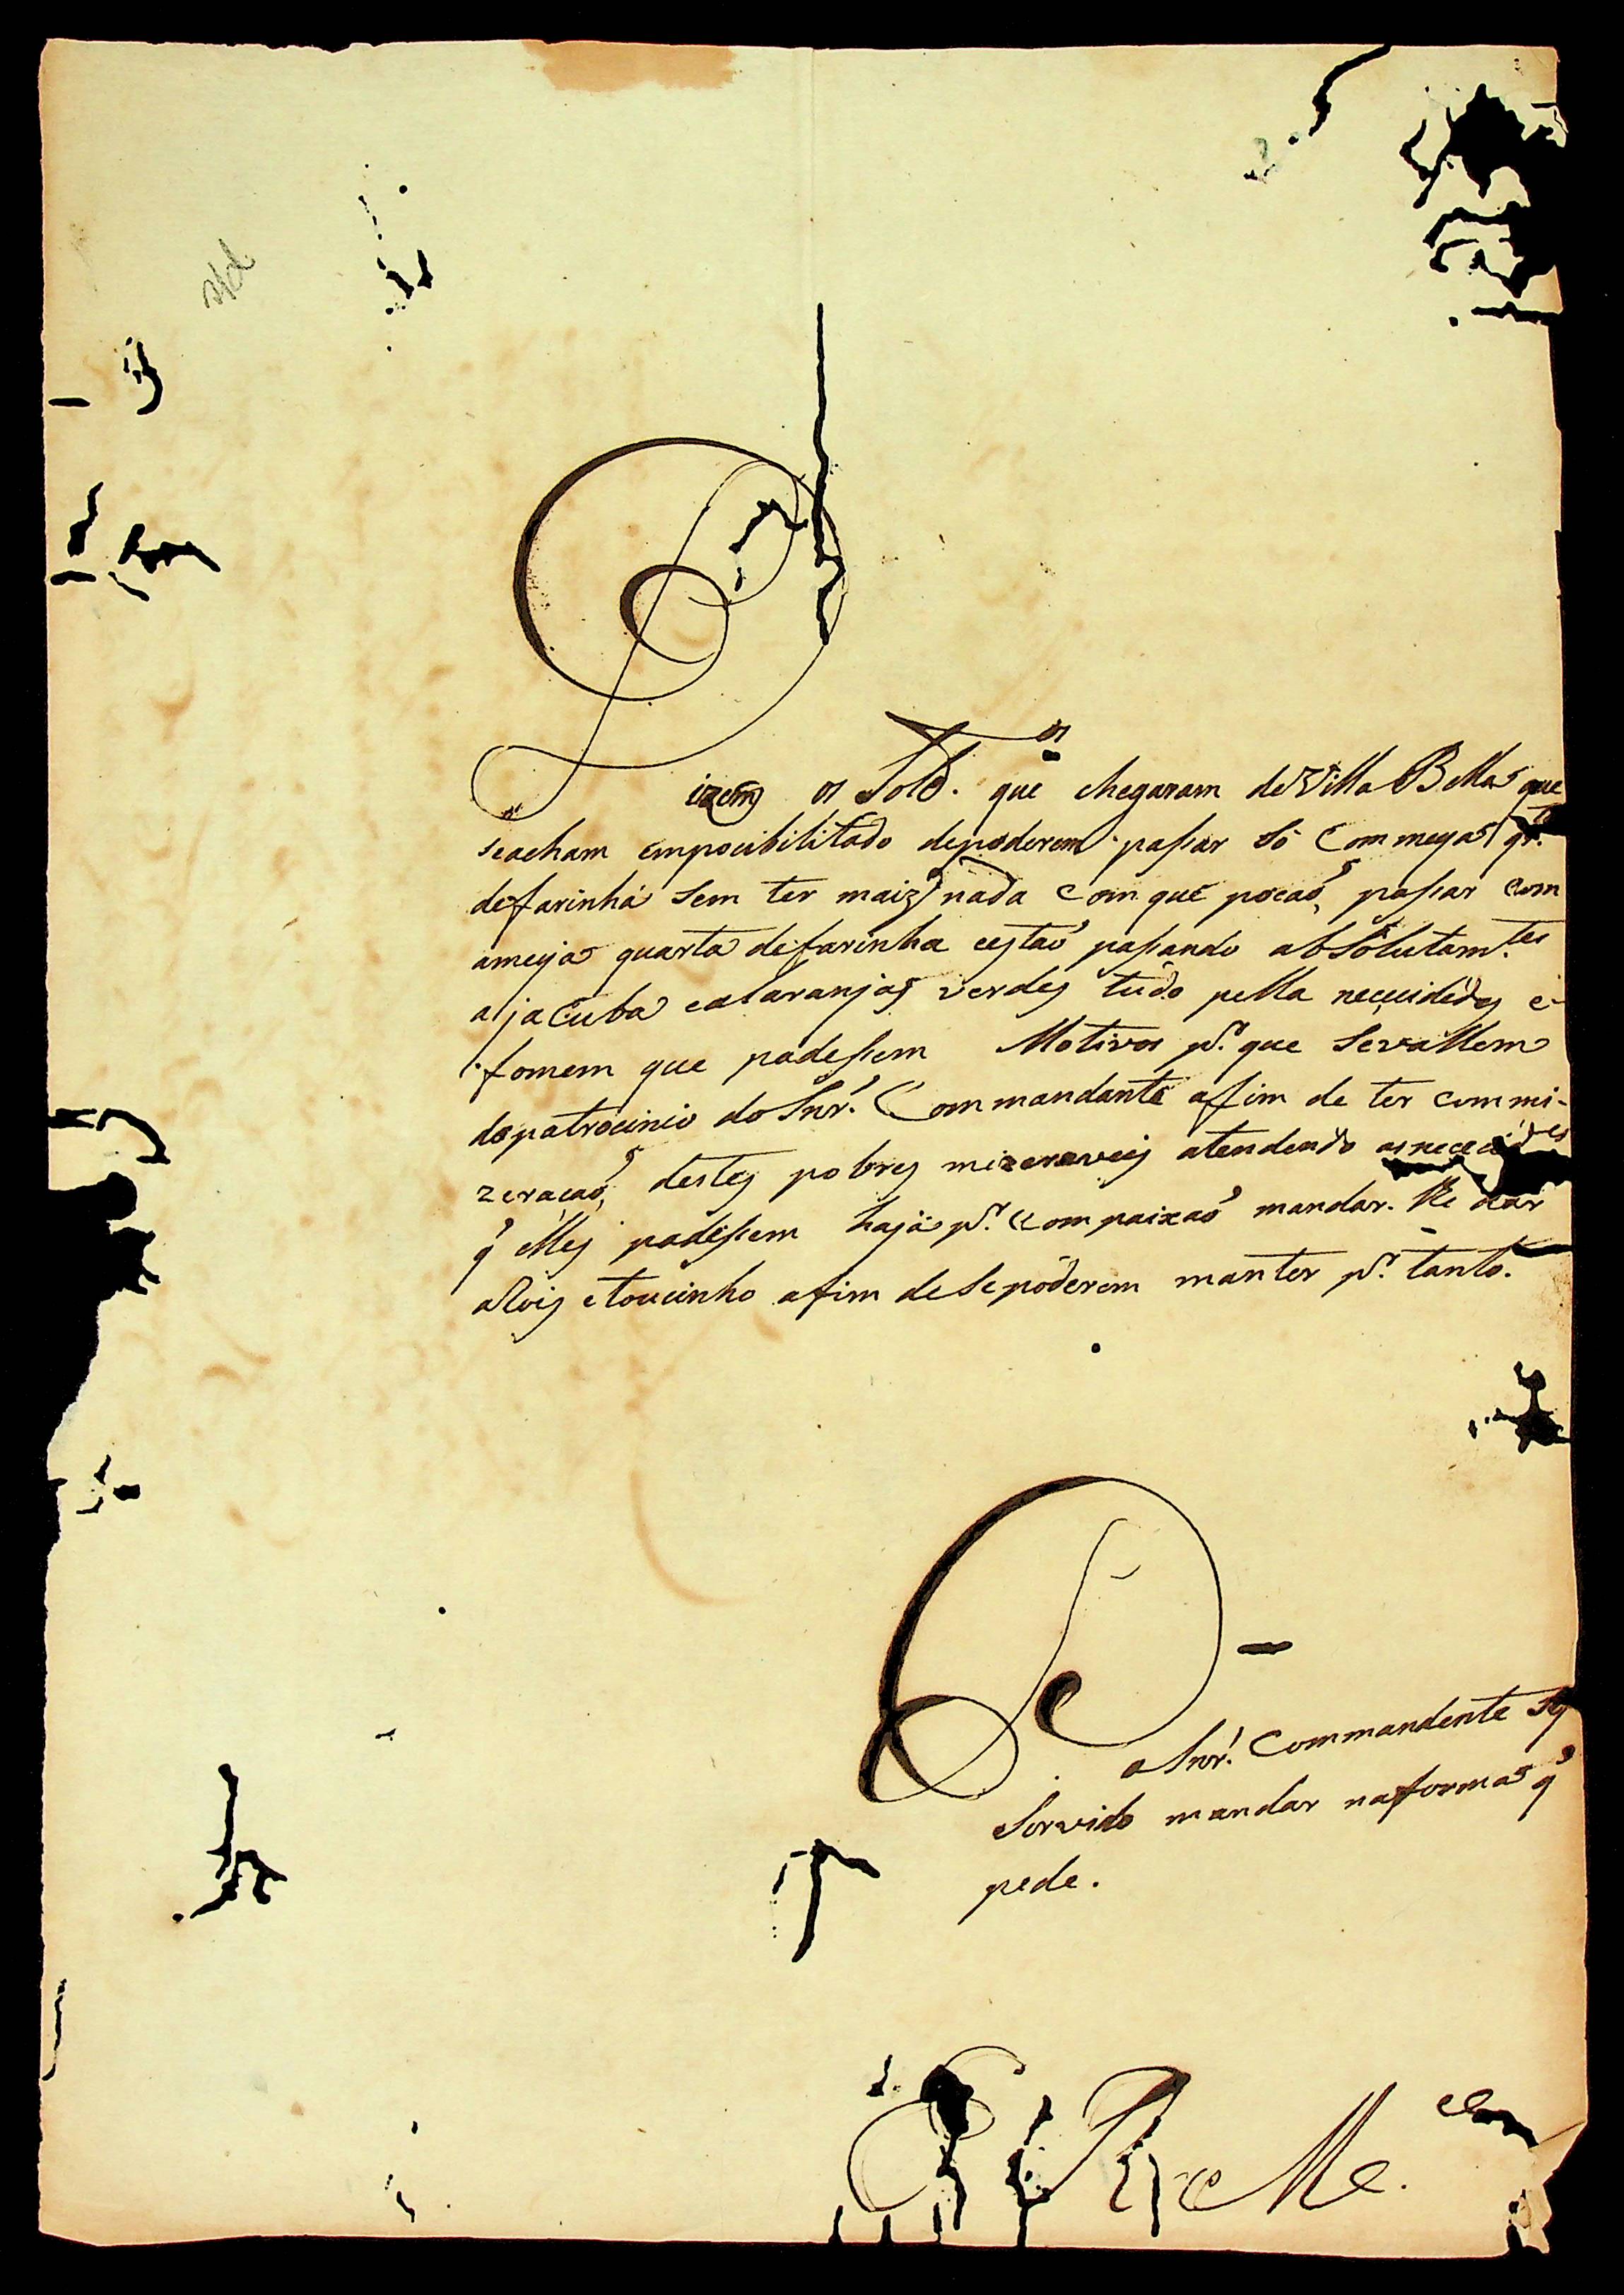 s/d
Dizem os Sold.os que chegaram de Villa Bella que
seacham empocibilitado depoderem passar só Com meya qr.ta
defarinha sem ter maiz nada com que pocaõ, passar com
ameya quarta defarinha eestaõ passando absolutam.tes
ajaCuba ealaranjas verdes tudo pella necuidédes e
fomem que padessem Motivos p.r que sevallem
dopatrocinio do Snr.' Commandante afim de ter commi-
zeraçaõ, destes pobres mizeraveis atendendo as
q' elles padessem haja p.r Compaixaõ mandar. lhe dar
aRois etoucinho afim deSepoderem manter p.r tanto.
P
a Snr.' Commandente
Servido mandar naforma q'
pede.
E R Mce.